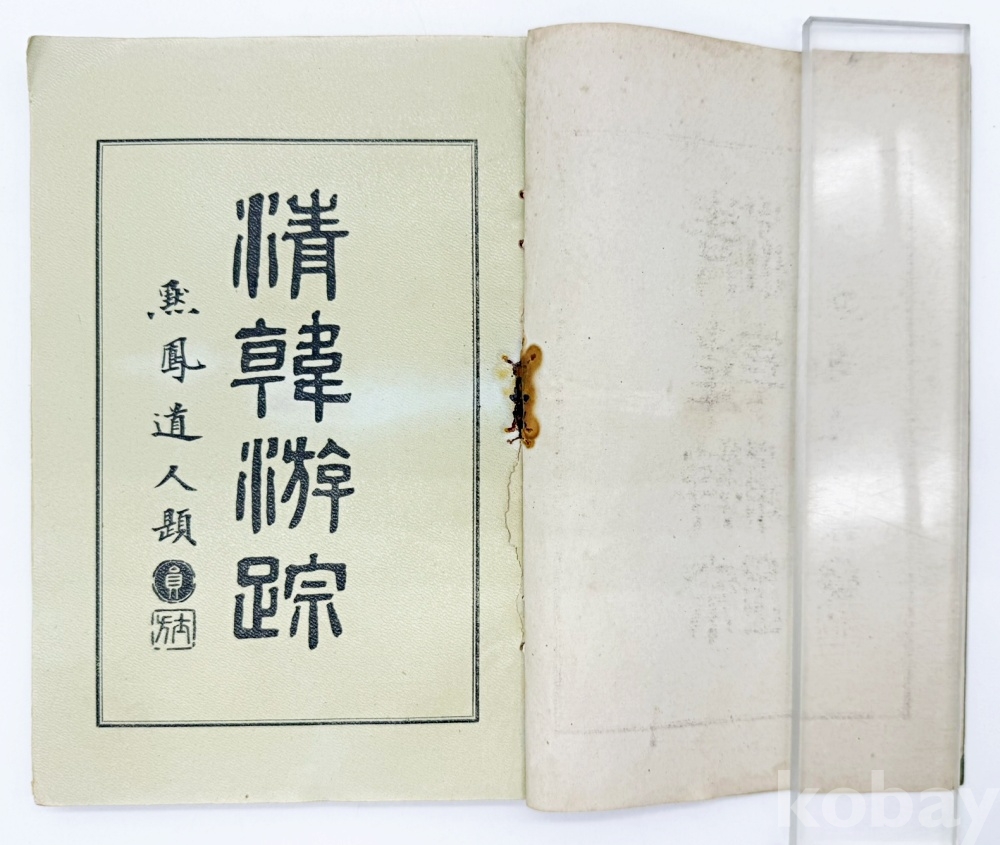 清韓游踪
黙鳳道人題
kobay